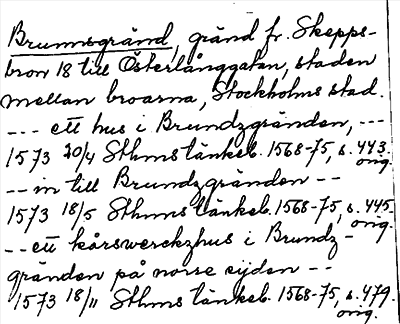 Brunnsgränd, gränd fr. Skepps-
bron 18 till Österlånggatan, staden
mellan broarna, Stockholms stad.
--- ett hus i Brundzgränden, ---
1573 20/4 Sthms tänkeb. 1568-75, s. 443.
orig.
-- in till Brundzgränden --
1573 18/5 Sthms tänkeb. 1568-75, s. 445
orig.
-- ett kårswerckzhus i Brundz-
gränden på norre sijden --
1573 18/11 Sthms tänkeb. 1568-75, s. 479.
orig.